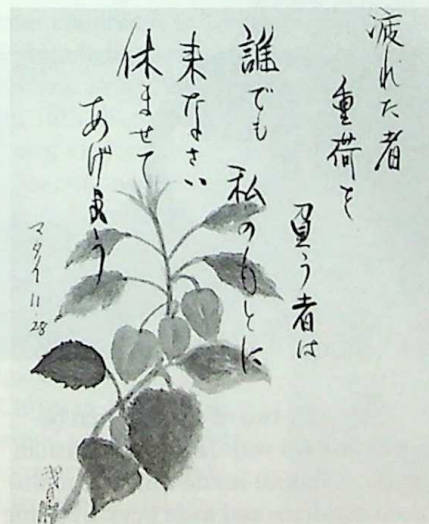 疲れた者
重荷を
負う者は
誰でも 私のもとに
来なさい
休ませて
あげよう
マタイ 11.28